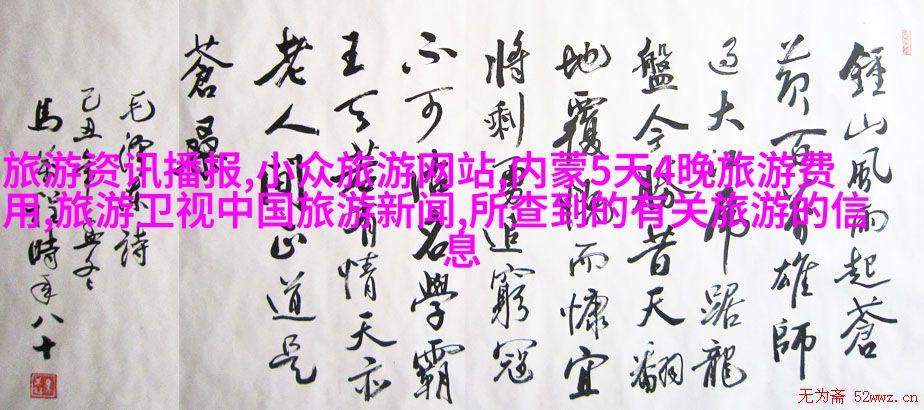 旅游资讯播报,小众旅游网站,内蒙5天4晚旅游费
用,旅游卫视中国旅游新闻,所查到的有关旅游的信
息
鍾山風雨起蒼
黃百萬雄師
過大江虎踞龍
盤今勝昔天翻
地覆慨而慷宜
將剩勇追窮寇
不可沽名學霸
王天若有情天亦
老人間正道是
蒼
毛澤東詩
己丑
馬時年八十
无为斋 52wwz.cn